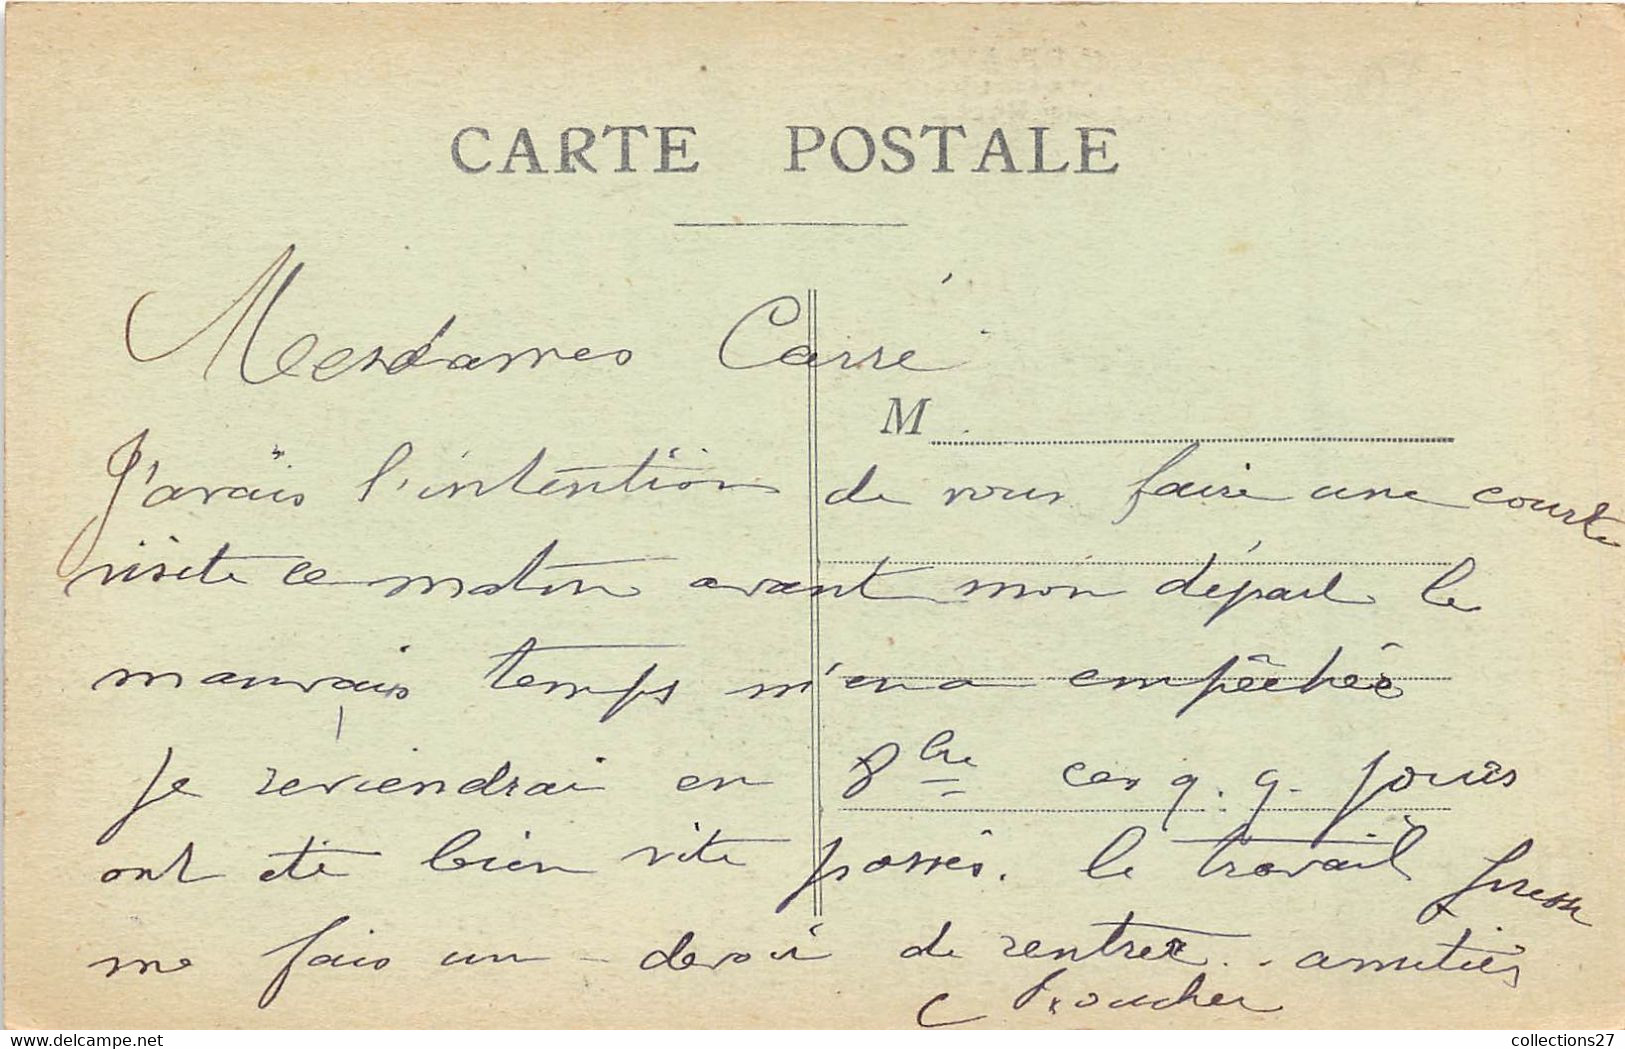 CARTE POSTALE
Mesdames Carré
M
J'avais l'intention de vous faire une courte
visite ce matin avant mon départ le
mauvais temps m'en a empêchée
je reviendrai en 8bre ces q. q. jours
ont été bien vite passés. le travail presse
me fais un devoir de rentrer.. amitiés
collections27